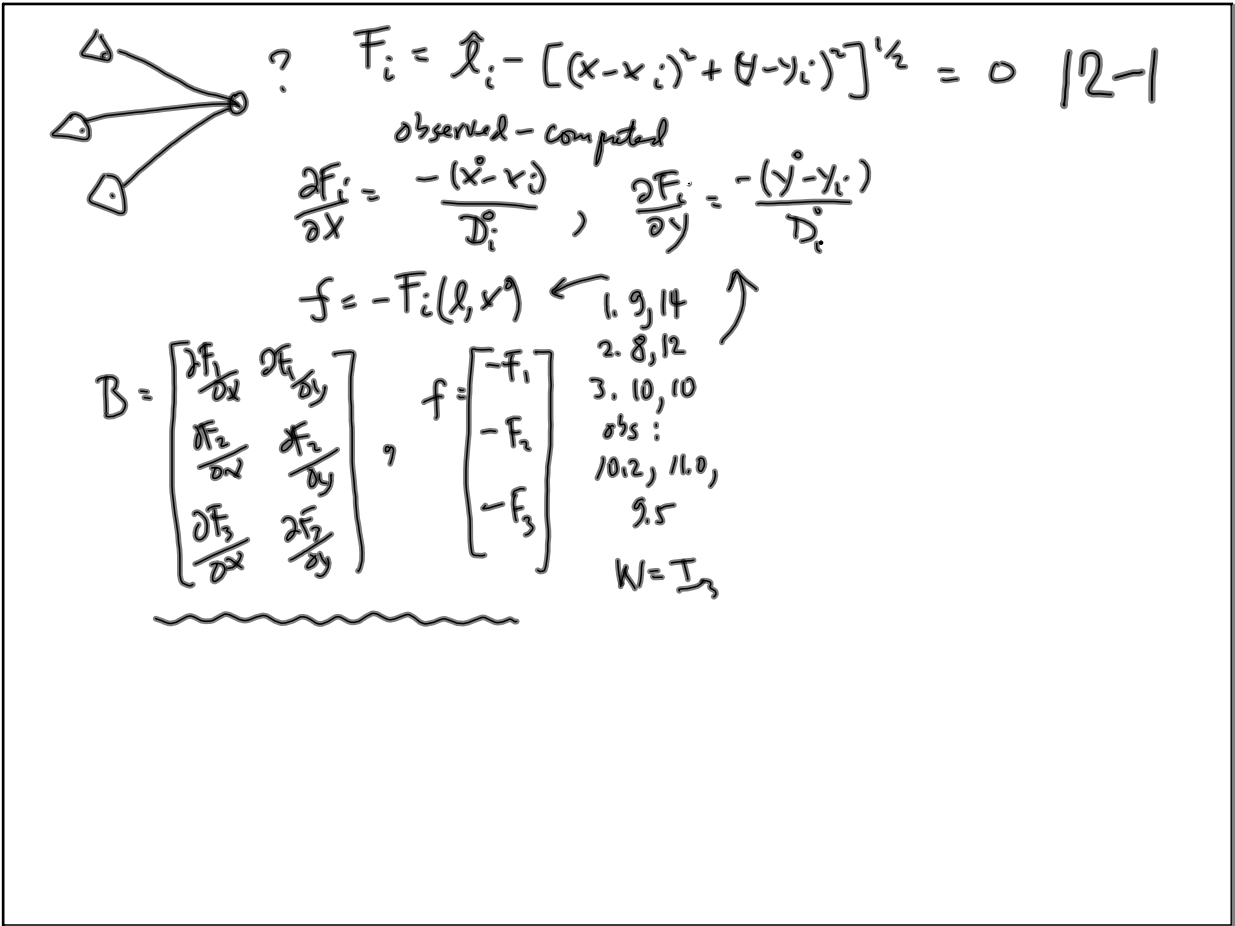 ? F_i = l̂_i - [(x-x_i)² + (y-y_i)²]^{1/2} = 0 12-1
observed - computed
∂F_i/∂x = -(x°-x_i)/D_i° , ∂F_i/∂y = -(y°-y_i)/D_i°
f = -F_i(l, x°) ← 1. 9, 14
2. 8, 12
3. 10, 10
obs :
10.2, 11.0,
9.5
W = I_3
B = [∂F_1/∂x ∂F_1/∂y
∂F_2/∂x ∂F_2/∂y
∂F_3/∂x ∂F_3/∂y] , f = [-F_1
-F_2
-F_3]